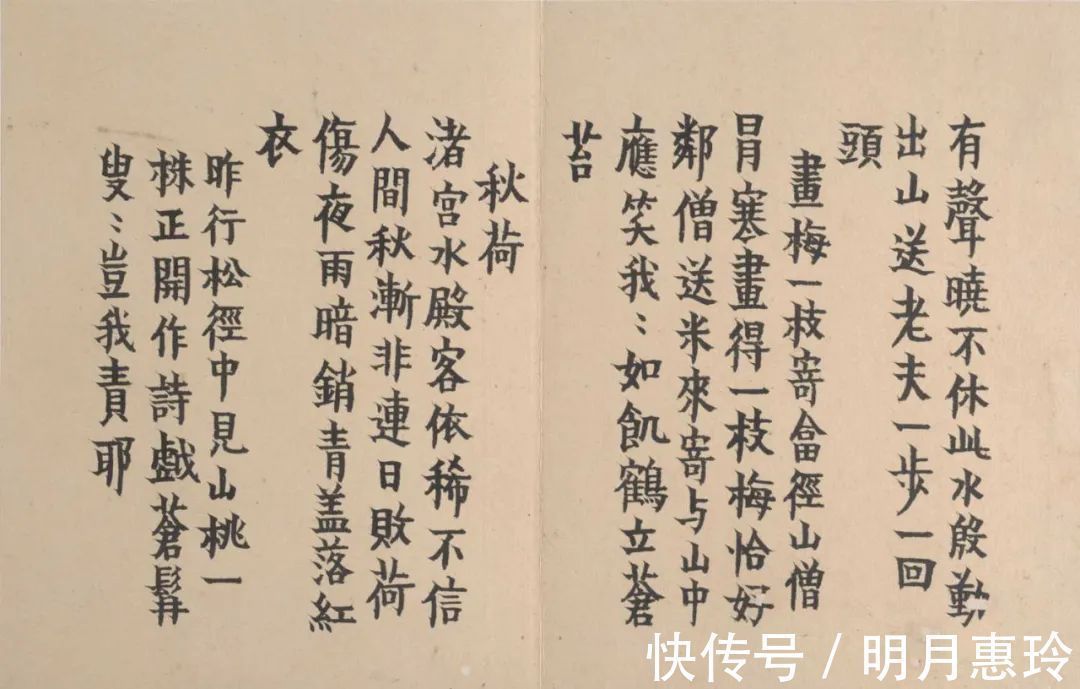 有聲曉不休此水殷勤
出山送老夫一步一回
頭
畫梅一枝寄畣徑山僧
冒寒畫得一枝梅恰好
鄰僧送米來寄与山中
應笑我〻如飢鶴立蒼
苔
秋荷
渚宮水殿客依稀不信
人間秋漸非連日敗荷
傷夜雨暗銷青盖落紅
衣
昨行松徑中見山桃一
株正開作詩戲蒼髯
叟〻豈我責耶
快传号 / 明月惠玲